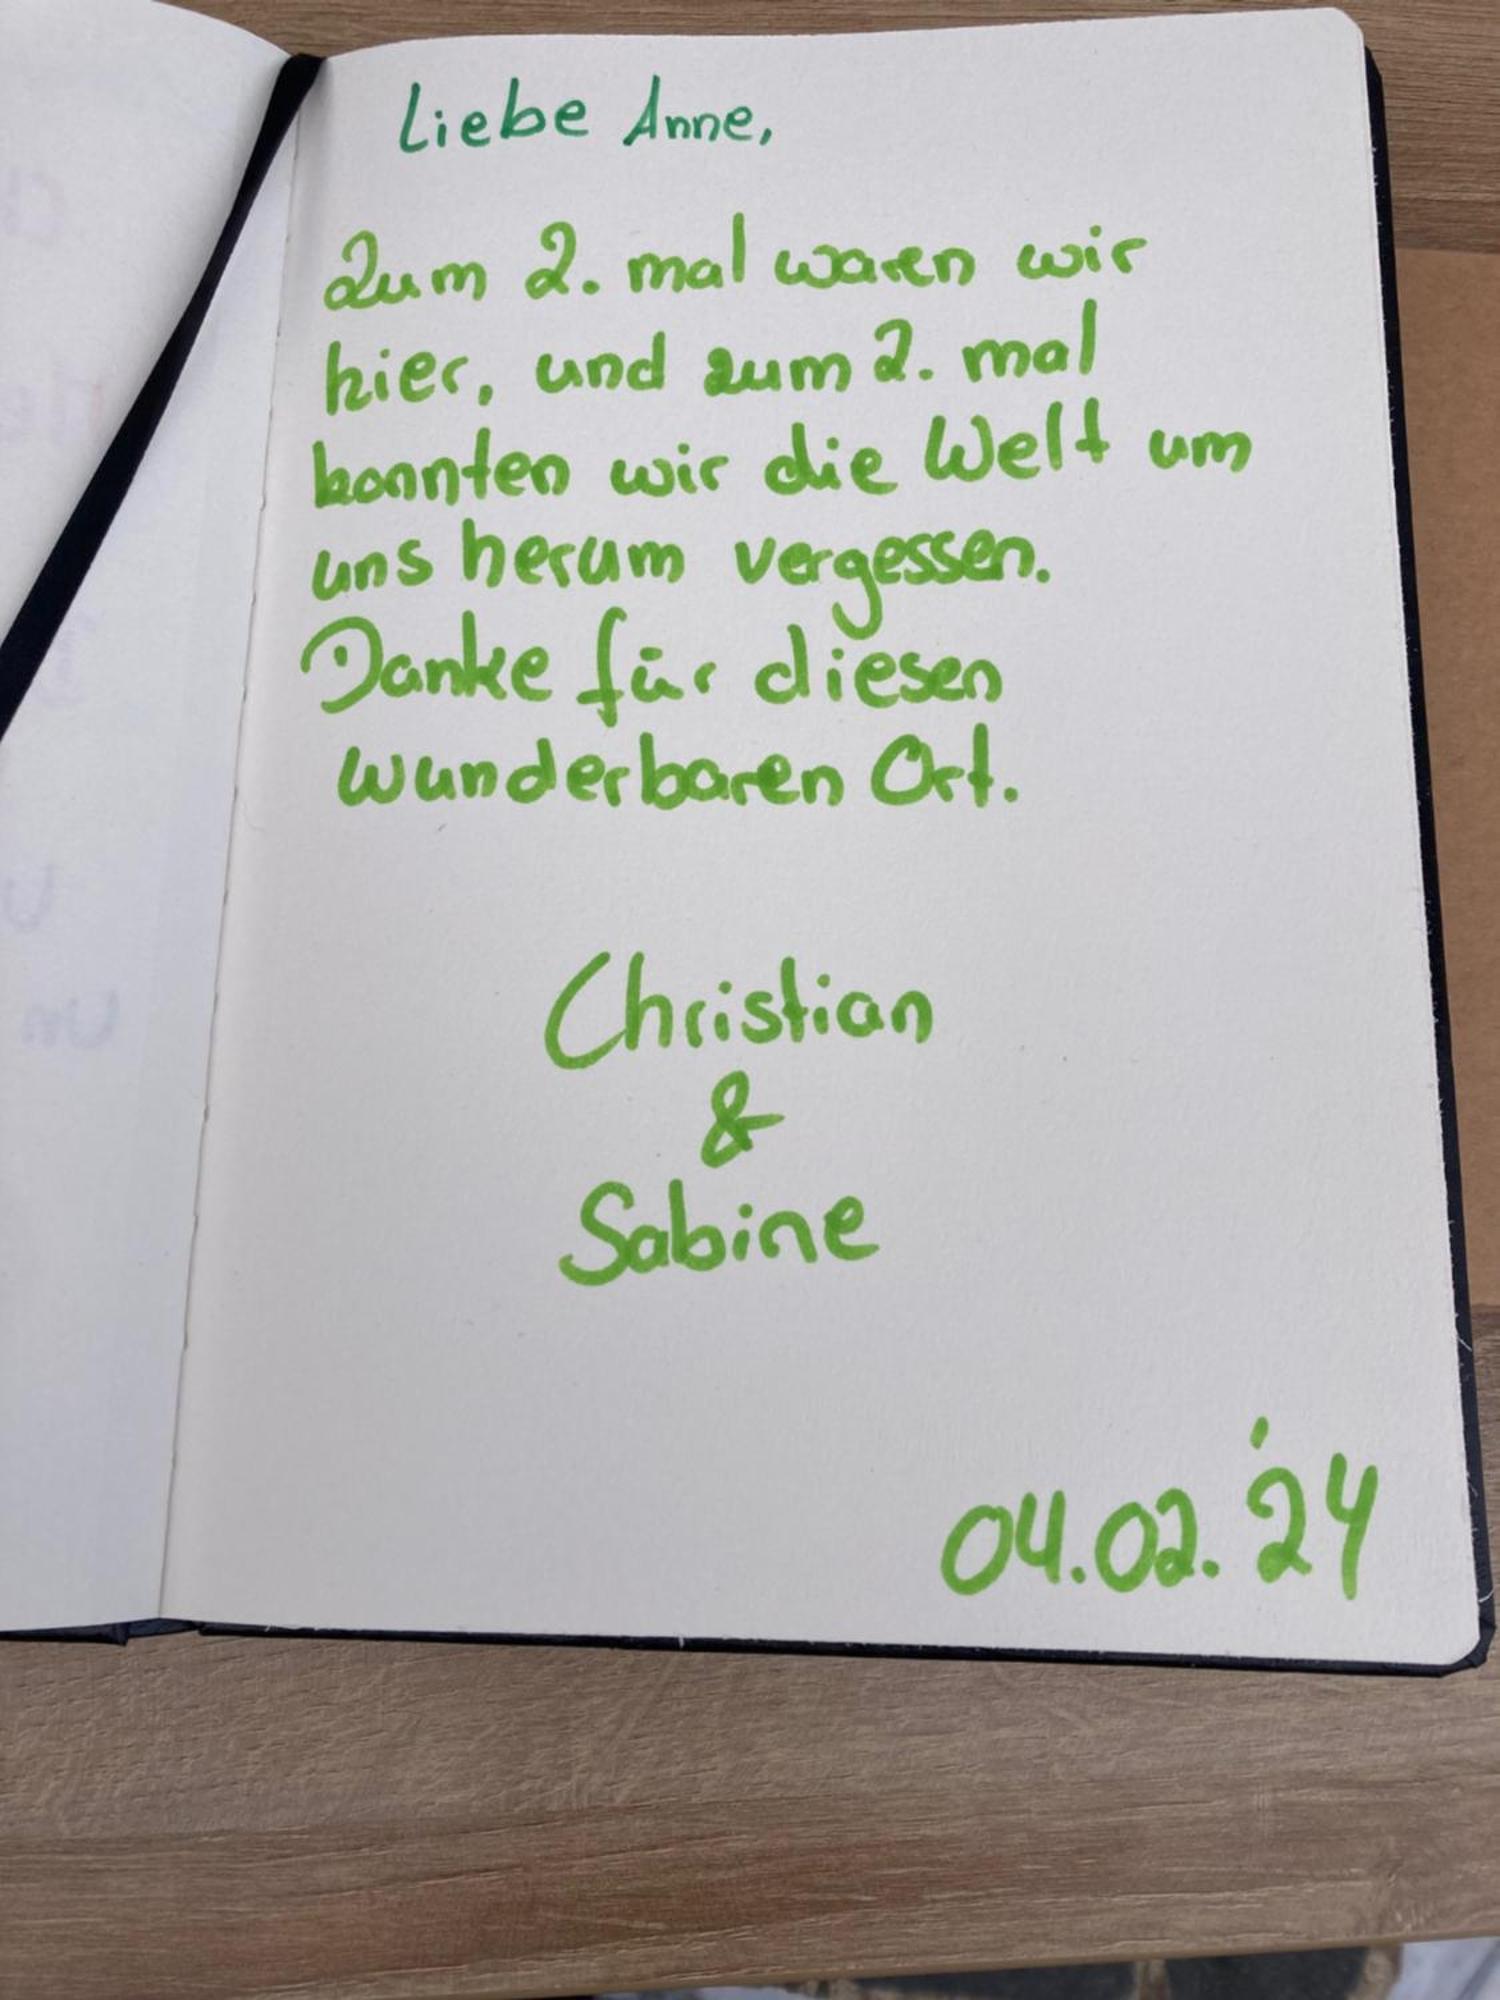 Liebe Anne,
Zum 2. mal waren wir
hier, und zum 2. mal
konnten wir die Welt um
uns herum vergessen.
Danke für diesen
wunderbaren Ort.
Christian
&
Sabine
04.02.'24